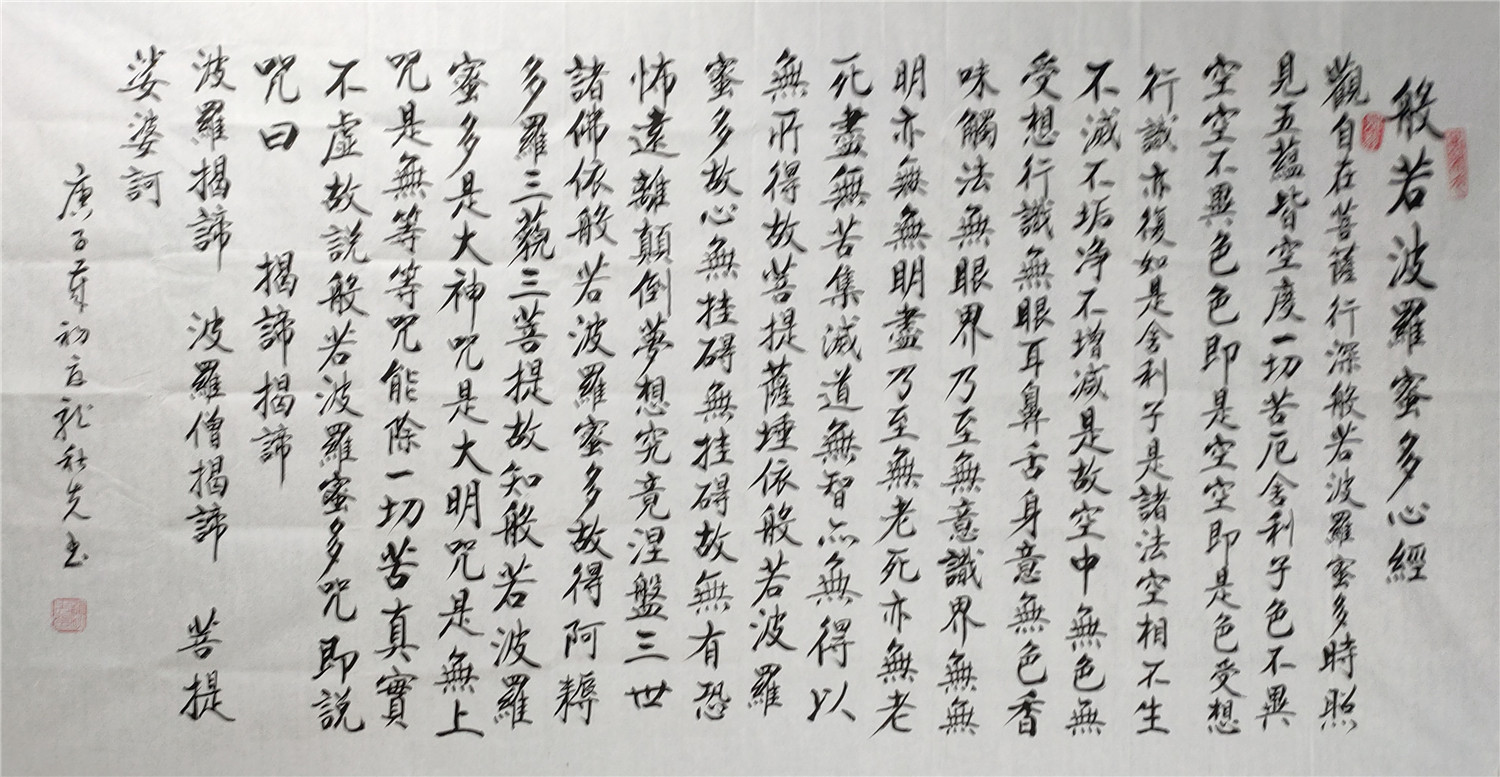 般若波羅蜜多心經
觀自在菩薩行深般若波羅蜜多時照
見五蘊皆空度一切苦厄舍利子色不異
空空不異色色即是空空即是色受想
行識亦復如是舍利子是諸法空相不生
不滅不垢净不增減是故空中無色無
受想行識無眼耳鼻舌身意無色香
味觸法無眼界乃至無意識界無無
明亦無無明盡乃至無老死亦無老
死盡無苦集滅道無智亦無得以
無所得故菩提薩埵依般若波羅
蜜多故心無挂碍無挂碍故無有恐
怖遠離顛倒夢想究竟涅盤三世
諸佛依般若波羅蜜多故得阿耨
多羅三藐三菩提故知般若波羅
蜜多是大神咒是大明咒是無上
咒是無等等咒能除一切苦真實
不虛故説般若波羅蜜多咒即説
咒曰 揭諦揭諦
波羅揭諦 波羅僧揭諦 菩提
娑婆訶
庚子歲初 龍秋先书